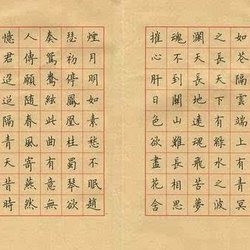 如花隔雲端上有青冥
之長天下有淥水之波
瀾天長地遠魂飛苦夢
魂不到關山難長相思
摧心肝日色欲盡花含
煙月明如素愁不眠趙
瑟初停鳳凰柱蜀琴欲
奏鴛鴦弦此曲有意無
人傳願隨春風寄燕然
憶君迢迢隔青天昔時